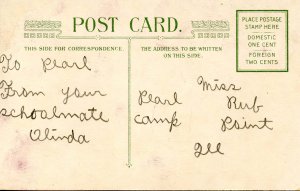 POST CARD.
THIS SIDE FOR CORRESPONDENCE.
THE ADDRESS TO BE WRITTEN
ON THIS SIDE.
PLACE POSTAGE
STAMP HERE
DOMESTIC
ONE CENT
FOREIGN
TWO CENTS
To Pearl
From your
schoolmate
Olinda
Miss
Pearl Rub
Camp Point
Ill